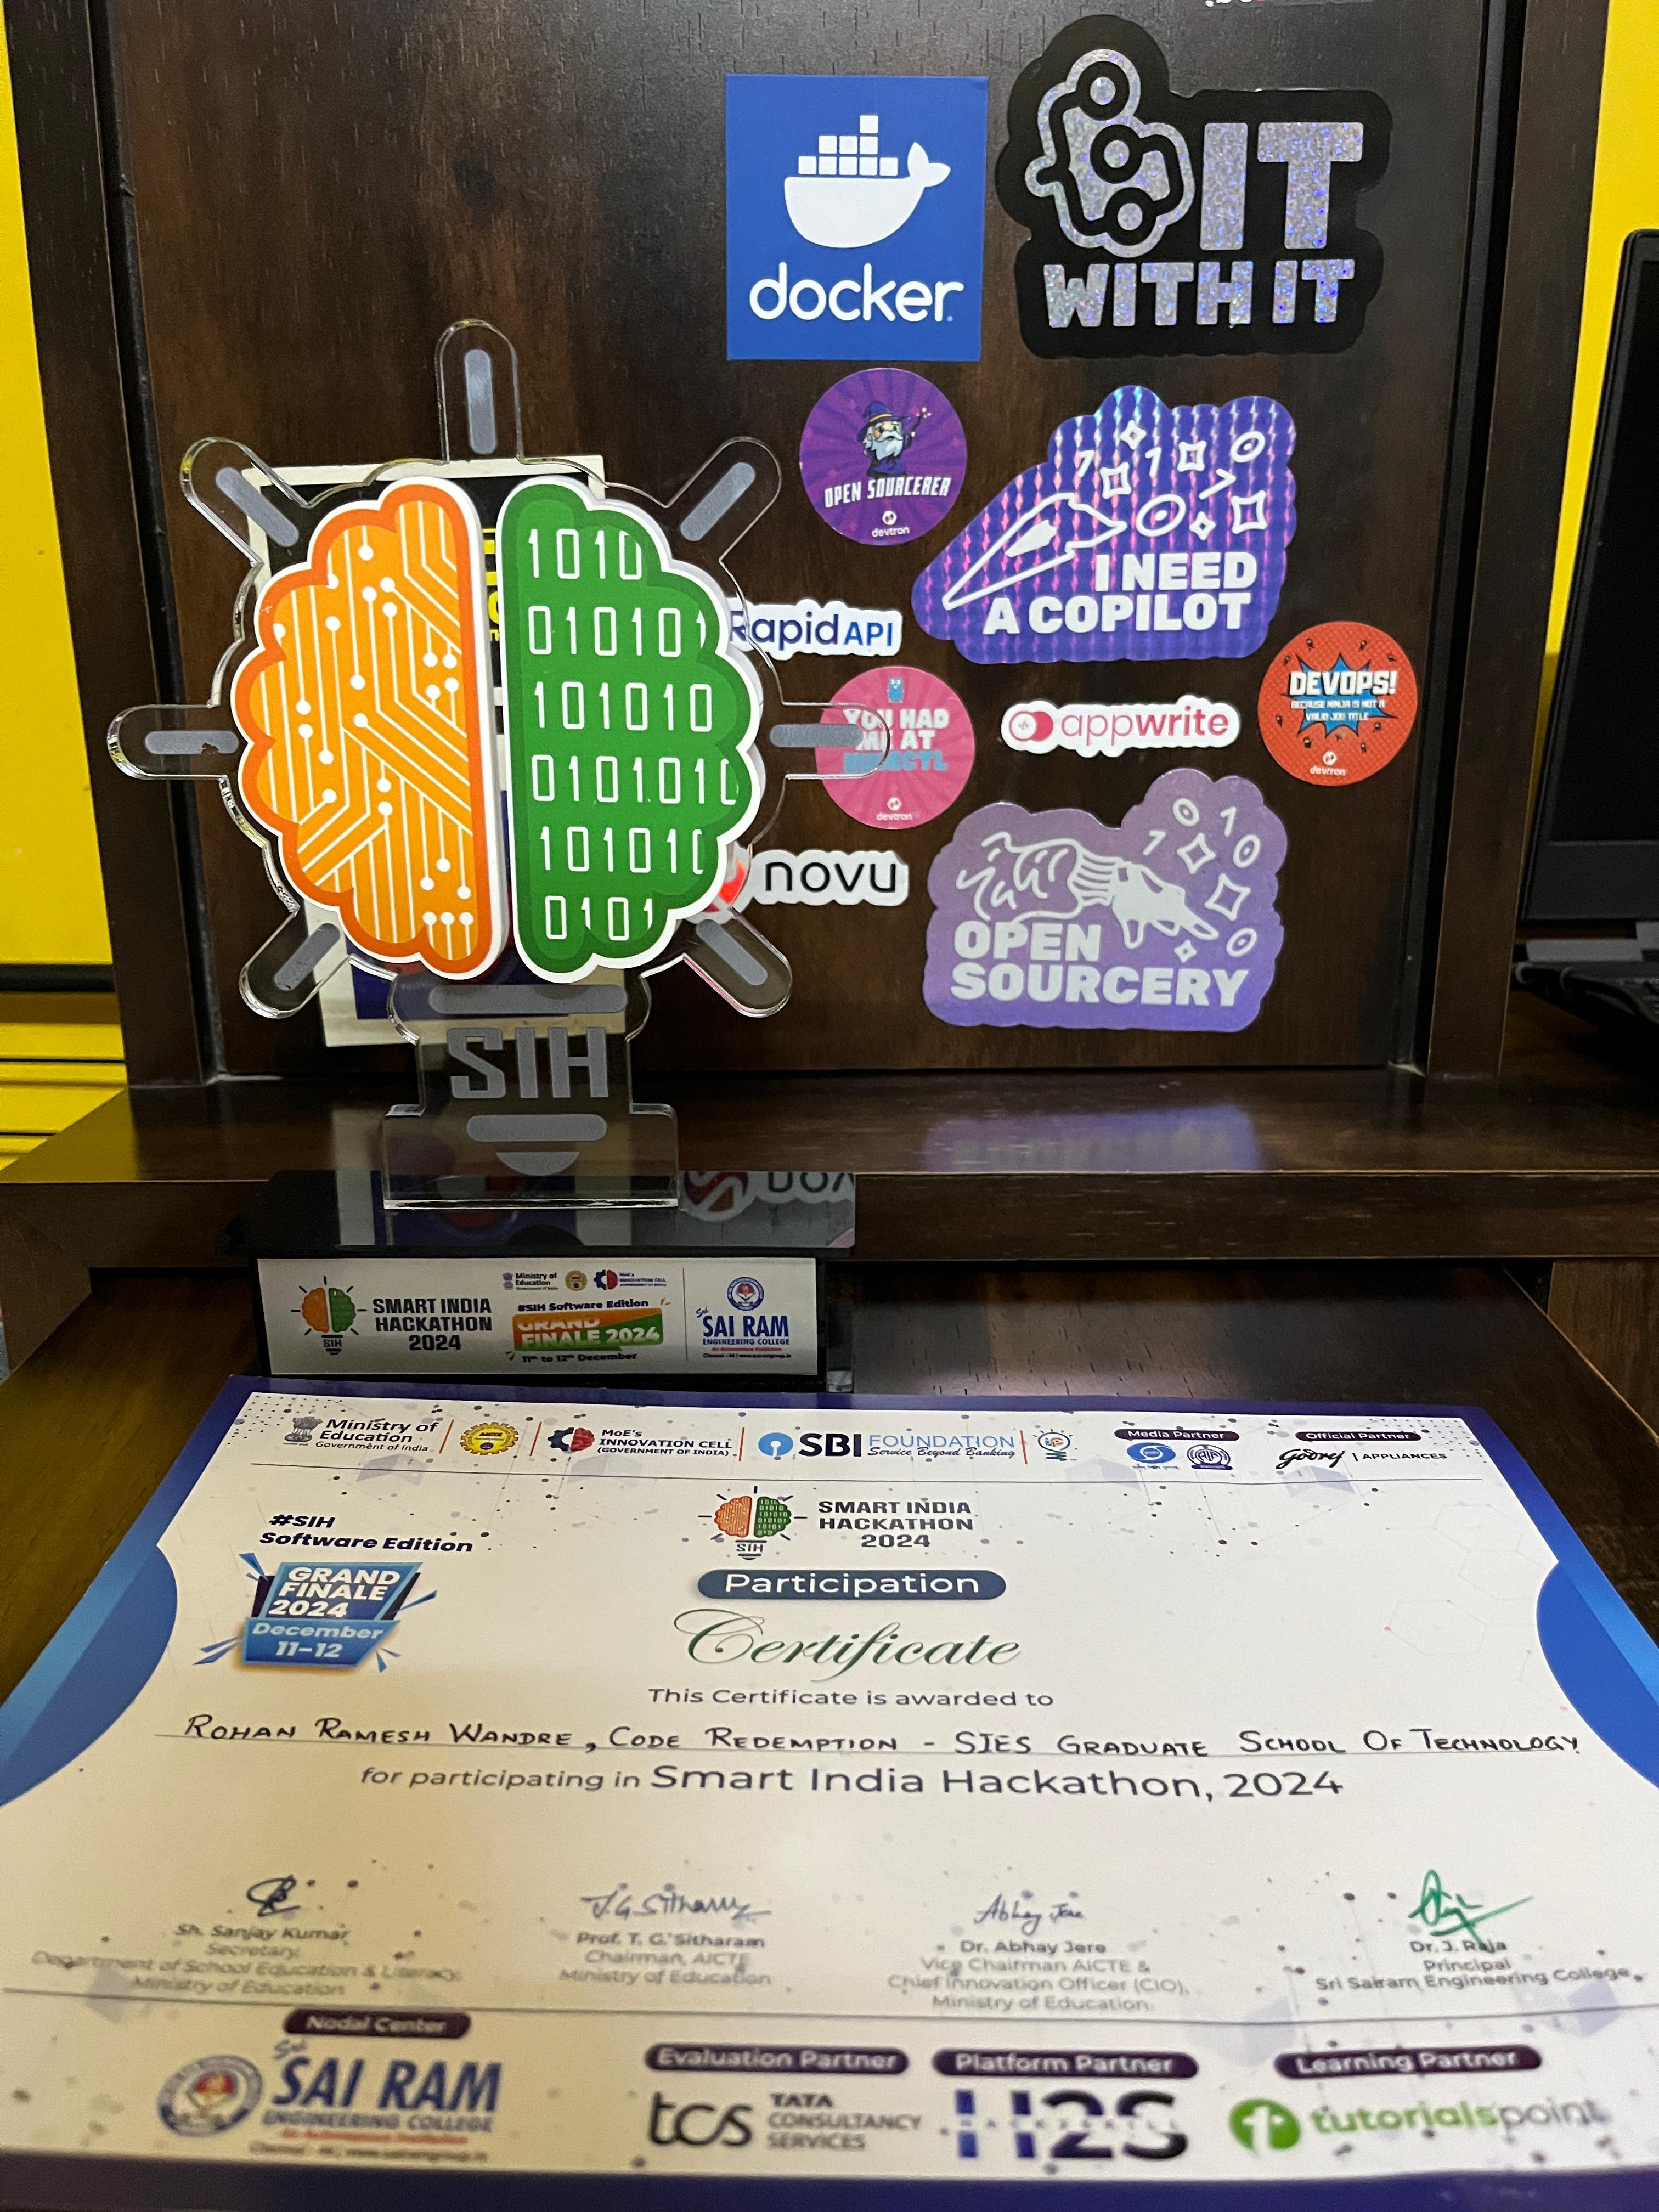 docker
GIT
WITH IT
OPEN SOURCERER
devtron
I NEED
A COPILOT
RapidAPI
DEVOPS!
BECAUSE NINJA IS NOT A
VALID JOB TITLE
devtron
YOU HAD
ME AT
devtron
appwrite
novu
OPEN
SOURCERY
1010
010101
101010
0101010
101010
0101
SIH
SMART INDIA
HACKATHON
2024
SIH
Ministry of
Education
Government of India
MoE's
INNOVATION CELL
(GOVERNMENT OF INDIA)
#SIH Software Edition
GRAND
FINALE 2024
11th to 12th December
Sri
SAI RAM
ENGINEERING COLLEGE
An Autonomous Institution
Chennai - 44 | www.sairamgroup.in
Ministry of
Education
Government of India
MoE's
INNOVATION CELL
(GOVERNMENT OF INDIA)
SBI FOUNDATION
Service Beyond Banking
Media Partner
Official Partner
Godrej | APPLIANCES
#SIH
Software Edition
GRAND
FINALE
2024
December
11-12
SIH
SMART INDIA
HACKATHON
2024
Participation
Certificate
This Certificate is awarded to
ROHAN RAMESH WANDRE, CODE REDEMPTION - SIES GRADUATE SCHOOL OF TECHNOLOGY
for participating in Smart India Hackathon, 2024
Sh. Sanjay Kumar
Secretary
Department of School Education & Literacy,
Ministry of Education
T.G. Sitharam
Prof. T. G. Sitharam
Chairman, AICTE
Ministry of Education
Abhay Jere
Dr. Abhay Jere
Vice Chairman AICTE &
Chief Innovation Officer (CIO),
Ministry of Education
Dr. J. Raja
Principal
Sri Sairam Engineering College
Nodal Center
Sri
SAI RAM
ENGINEERING COLLEGE
An Autonomous Institution
Chennai - 44 | www.sairamgroup.in
Evaluation Partner
tcs TATA
CONSULTANCY
SERVICES
Platform Partner
H2S
HACK2SKILL
Learning Partner
tutorialspoint